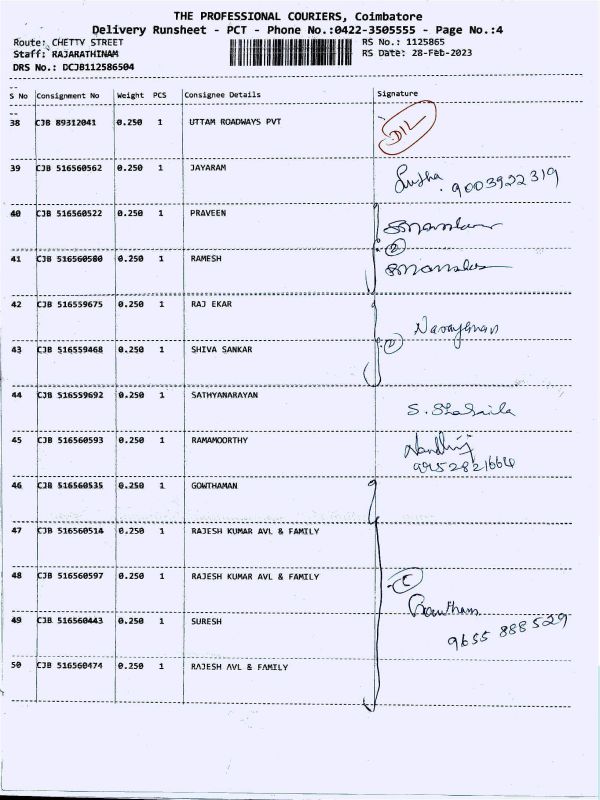 THE PROFESSIONAL COURIERS, Coimbatore
Delivery Runsheet - PCT - Phone No.:0422-3505555 - Page No.:4
Route: CHETTY STREET RS No.: 1125865
Staff: RAJARATHINAM RS Date: 28-Feb-2023
DRS No.: DCJB112586504
S No Consignment No Weight PCS Consignee Details Signature
38 CJB 89312041 0.250 1 UTTAM ROADWAYS PVT
39 CJB 516560562 0.250 1 JAYARAM 9003922319
40 CJB 516560522 0.250 1 PRAVEEN
41 CJB 516560580 0.250 1 RAMESH
42 CJB 516559675 0.250 1 RAJ EKAR
43 CJB 516559468 0.250 1 SHIVA SANKAR
44 CJB 516559692 0.250 1 SATHYANARAYAN
45 CJB 516560593 0.250 1 RAMAMOORTHY
46 CJB 516560535 0.250 1 GOWTHAMAN
47 CJB 516560514 0.250 1 RAJESH KUMAR AVL & FAMILY
48 CJB 516560597 0.250 1 RAJESH KUMAR AVL & FAMILY
49 CJB 516560443 0.250 1 SURESH 9655 888529
50 CJB 516560474 0.250 1 RAJESH AVL & FAMILY